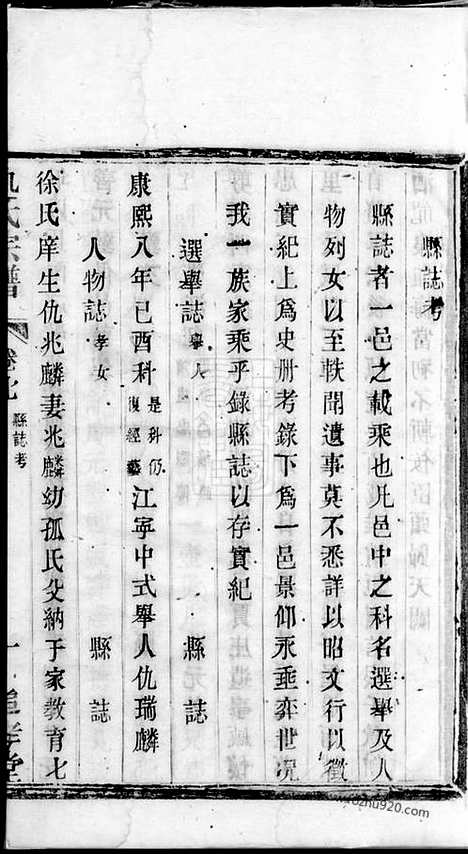 縣誌考
縣誌者一邑之載乘也凡邑中之科名選舉及人
物列女以至軼聞遺事莫不悉詳以昭文行以徵
實紀上爲史册考錄下爲一邑景仰永垂弈世况
我一族家乘乎錄縣誌以存實紀
選舉誌 舉人 縣誌
康熙八年己酉科 是科仍復經藝 江寜中式舉人仇瑞麟
人物誌 孝女 縣誌
徐氏庠生仇兆麟妻兆麟幼孤氏父納于家教育七
仇氏宗譜 卷七 縣誌考 一 追孝堂